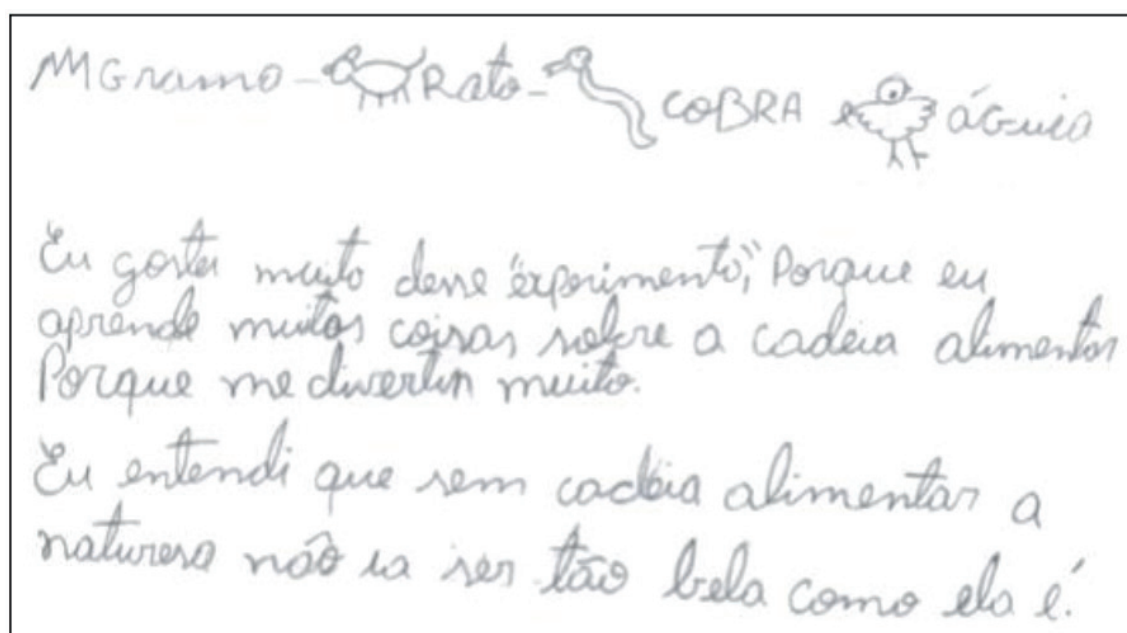 Gramo - Rato - COBRA águia
Eu gostei muito desse "experimento", Porque eu
aprende muitas coisas sobre a cadeia alimentar
Porque me divertir muito.
Eu entendi que sem cadeia alimentar a
naturesa não ia ser tão bela como ela é.